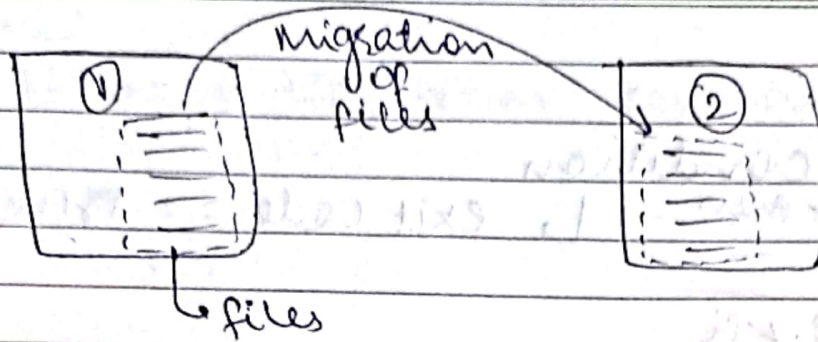 migration
of
files
1
2
files